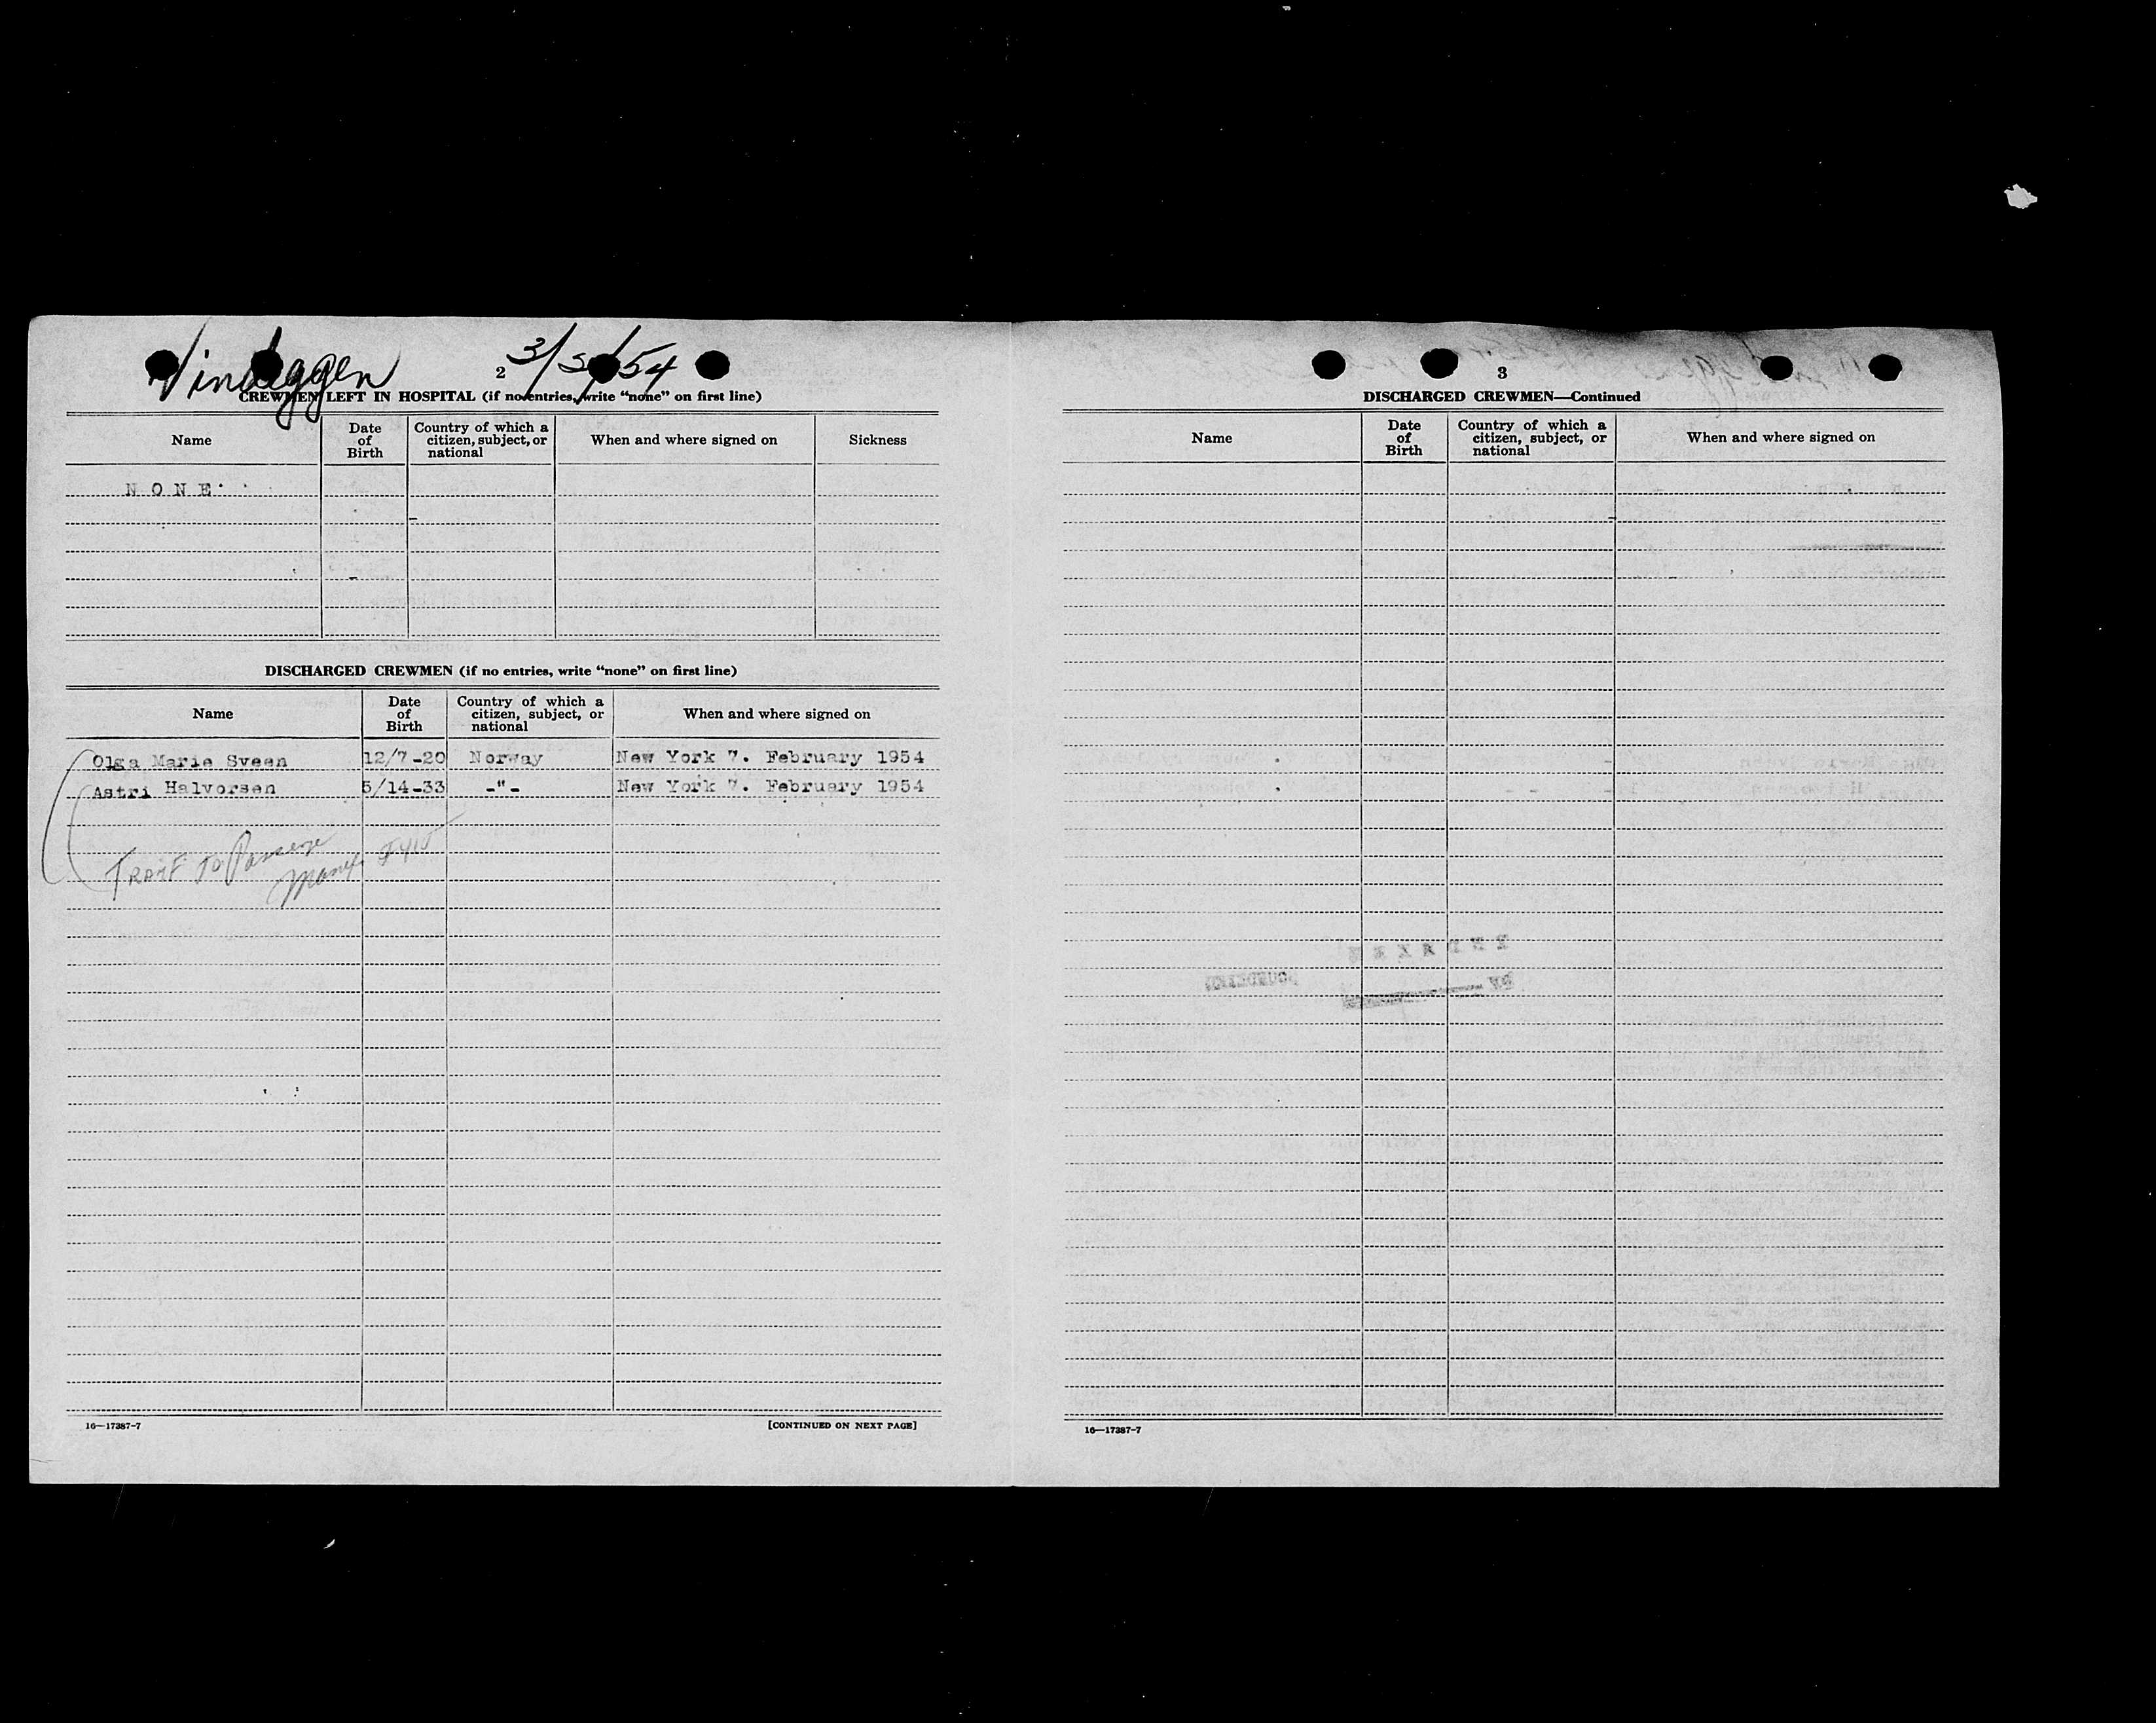 Vindeggen 3/3/54
2
CREWMEN LEFT IN HOSPITAL (if no entries, write “none” on first line)
Name
Date of Birth
Country of which a citizen, subject, or national
When and where signed on
Sickness
N O N E
DISCHARGED CREWMEN (if no entries, write “none” on first line)
Name
Date of Birth
Country of which a citizen, subject, or national
When and where signed on
Olga Marie Sveen 12/7-20 Norway New York 7. February 1954
Astri Halvorsen 5/14-33 -"- New York 7. February 1954
TO
16—17387-7
[CONTINUED ON NEXT PAGE]
3
DISCHARGED CREWMEN—Continued
Name
Date of Birth
Country of which a citizen, subject, or national
When and where signed on
16—17387-7